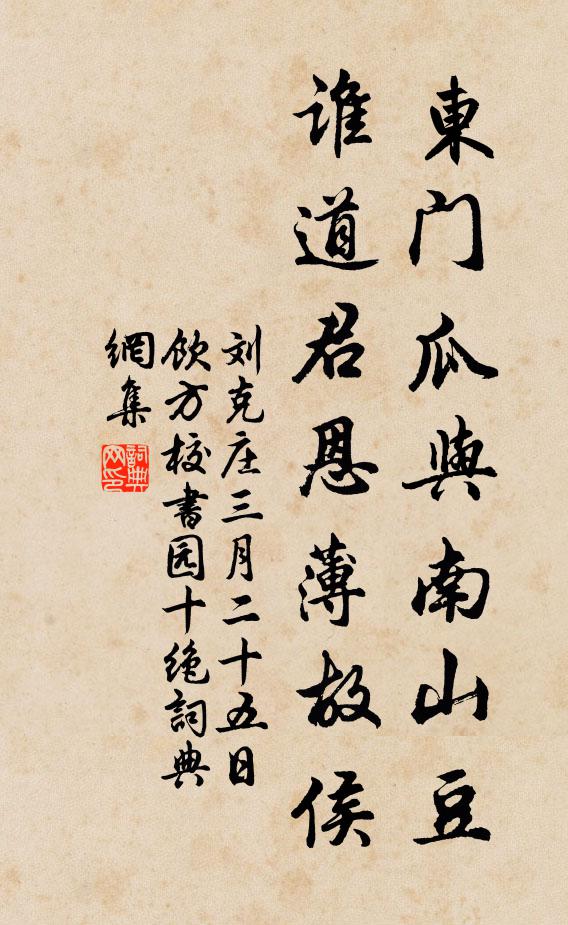 東门瓜與南山豆
谁道君恩薄故侯
刘克庄三月二十五日
饮方校书园十绝詞典
網集
詞典
网印